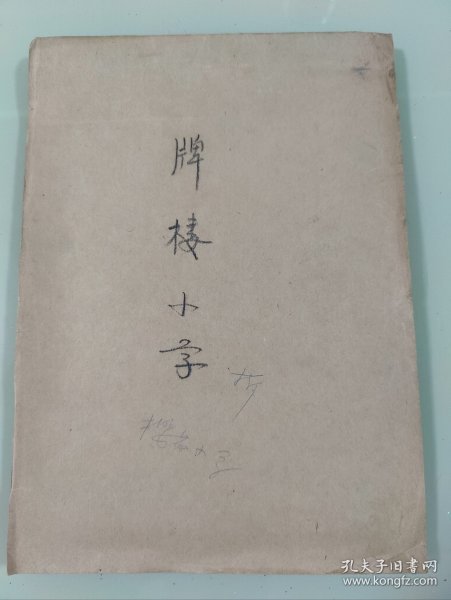 牌楼小学
孔夫子旧书网
www.kongfz.com